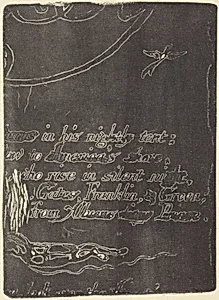 urns in his nightly tent:
ow to America's shore,
who rise in silent night,
Gates, Franklin, & Green,
from Albions fiery Prince.